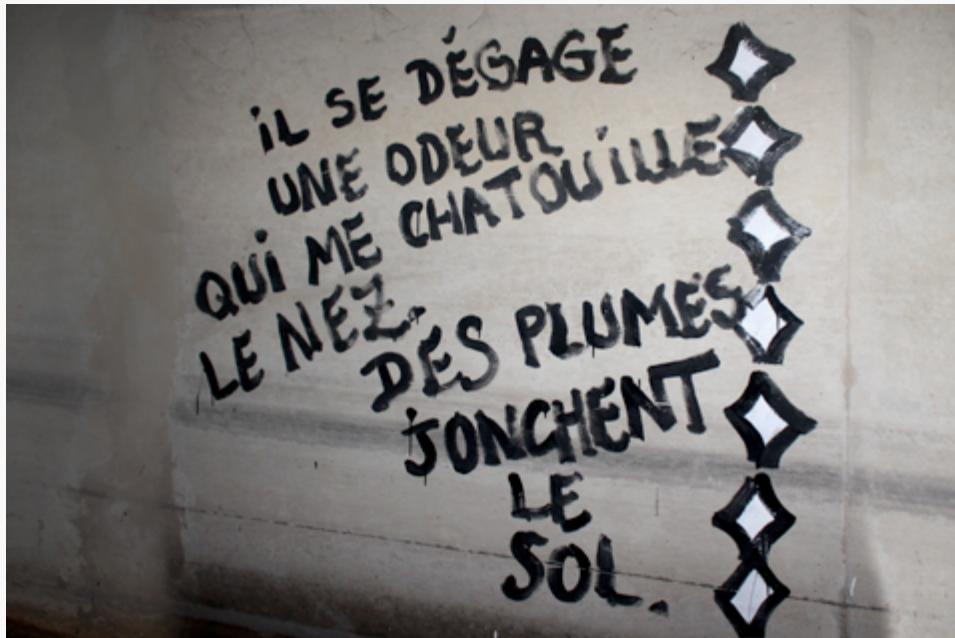 iL SE DÉGAGE
UNE ODEUR
QUi ME CHATOUiLLE
LE NEZ.
DES PLUMES
JONCHENT
LE
SOL.